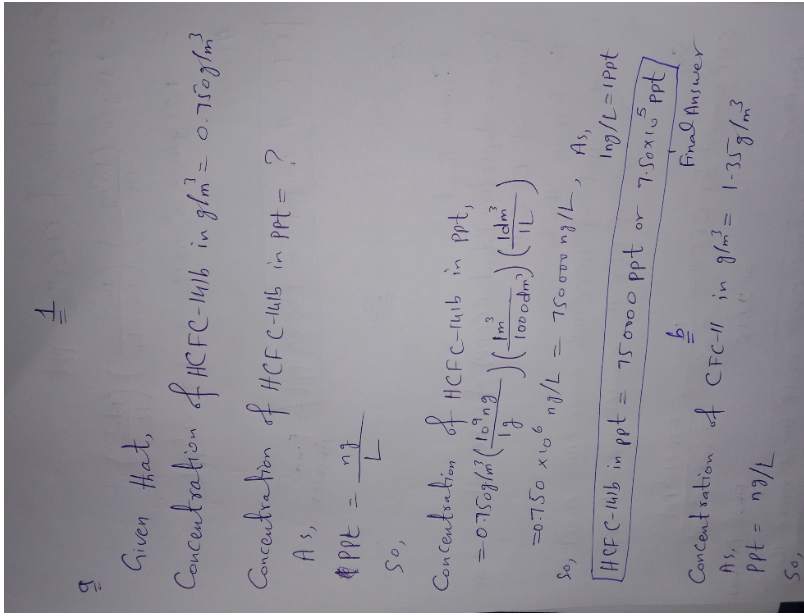 1
a
Given that,
Concentration of HCFC-141b in g/m³ = 0.750g/m³
Concentration of HCFC-141b in ppt = ?
As,
ppt = ng/L
So,
Concentration of HCFC-141b in ppt,
= 0.750g/m³ (10⁹ng/1g) (1m³/1000dm³) (1dm³/1L)
= 0.750 x 10⁶ ng/L = 750000 ng/L, As,
1ng/L = 1ppt
So,
HCFC-141b in ppt = 750000 ppt or 7.50x10⁵ ppt
Final Answer
b
Concentration of CFC-11 in g/m³ = 1.35g/m³
As,
ppt = ng/L
So,